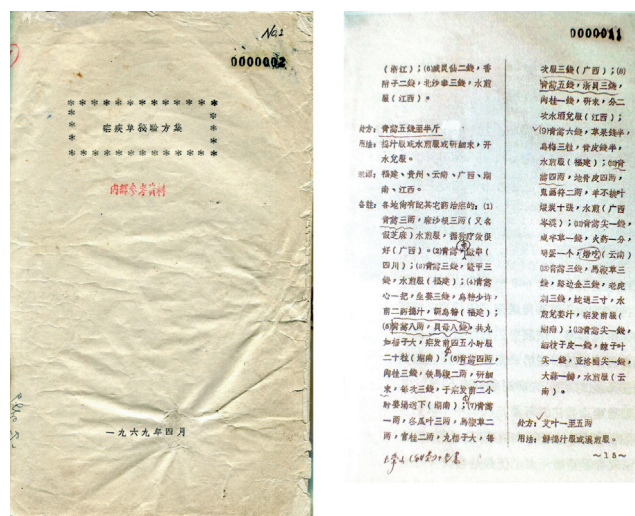 No.1
0000002
疟疾单秘验方集
内部参考资料
一九六九年四月
0000011
（浙江）；⑹威灵仙二钱，香
附子二钱，北沙参三钱，水煎
服（江西）。
处方：青蒿五钱至半斤
用法：捣汁服或水煎服或研细末，开
水兑服。
来源：福建、贵州、云南、广西、湖
南、江西。
备注：各地尚有配其它药治疟的：⑴
青蒿三两，麻沙根三两（又名
假芝麻）水煎服，
好（广西）。⑵青蒿
（四川）；⑶青蒿三钱，鳖甲三
钱，水煎服（福建）；⑷青蒿
心一把，生姜三钱，乌梅少许，
前二药捣汁，（福建）；
⑸青蒿八两，贝母八钱，共丸
如梧子大，疟发前四五小时服
二十粒（湖南）；⑹青蒿四两，
肉桂三钱，铁马鞭二两，研细
末，每次三钱，于疟发前二小
时姜汤送下（湖南）；⑺青蒿
一两，冬瓜叶三两，马鞭草二
两，官桂二两，丸梧子大，每
次服三钱（广西）；⑻
青蒿五钱，浙贝三钱，
肉桂一钱，研末，分二
次水酒兑服（江西）；
⑼青蒿六钱，草果钱半，
乌梅三粒，青皮钱半，
水煎服（福建）；⑽青
蒿四两，地骨皮四两，
二两，羊不挨叶
煨炭十钱，水煎（广西
）；⑾青蒿尖一钱，
咸平草一钱，火药一分，
鸡蛋一个，（云南）
⑿青蒿三钱，马鞭草三
钱，路边金三钱，老虎
刺三钱，蛇退三寸，水
煎兑姜汁，疟发前服（
湖南）；⒀青蒿尖一钱，
枝子皮一钱，辣子叶
尖一钱，
大蒜一瓣，水煎服（云
南）。
处方：艾叶一至五两
用法：鲜捣汁服或湿煎服。
～15～